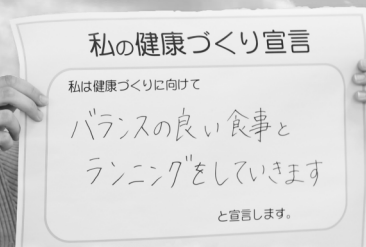 私の健康づくり宣言
私は健康づくりに向けて
バランスの良い食事と
ランニングをしていきます
と宣言します。